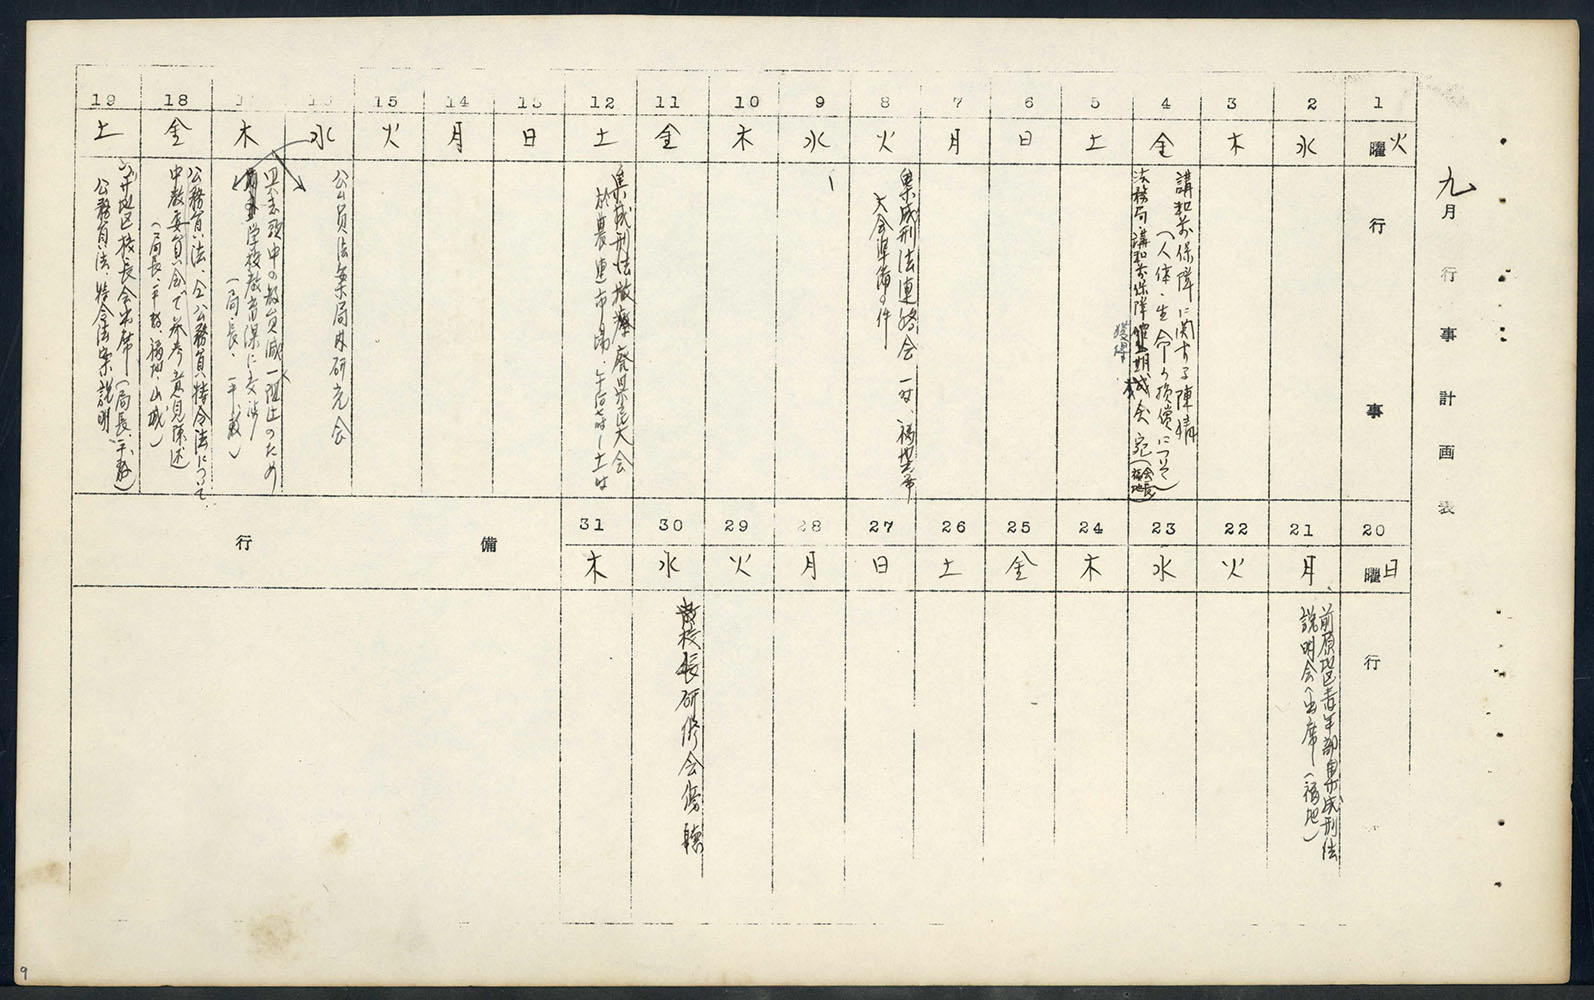 九月行事計画表
1
火曜
行事
2
水
3
木
4
金
講和前保障に関する陳情
(人体・生命の損償について)
法務局講和前保障獲得期成会宛(会長 福地)
5
土
6
日
7
月
8
火
集成刑法連絡会
大会準備の件
9
水
10
木
11
金
12
土
集成刑法撤廃県民大会
於農連市場・
13
日
14
月
15
火
水
公員法案局内研究会
木
教員減阻止のため
学校教育課に交渉
(局長・平敷)
18
金
公務員法、公務員特令法について
中教委員会で参考意見陳述
(局長、平敷、福地、山城)
19
土
地区校長会出席(局長、平敷)
公務員法、特令法案説明
20
日曜
行
21
月
前原地区青年部集成刑法
説明会へ出席(福地)
22
火
23
水
24
木
25
金
26
土
27
日
28
月
29
火
30
水
校長研修会傍聴
31
木
備
行
9